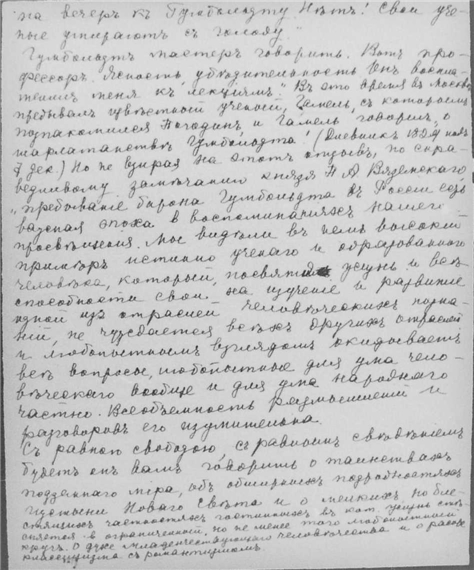 на вечеръ къ Гумбольдту Нѣтъ! Свои уче-
ные умираютъ съ голоду."
Гумбольдтъ мастеръ говорить. Вотъ про-
фессоръ. Ясность, убѣдительность. Онъ воспла-
меняетъ меня къ лекціямъ". Въ это время въ Москвѣ
пребывалъ извѣстный ученый, Гамель, съ которымъ
познакомился Погодинъ и Гамель говорилъ о
шарлатанствѣ Гумбольдта. (Дневникъ 1829 подъ
7 дек.) Но не взирая на этотъ отзывъ, по спра-
ведливому замѣчанію князя П А Вяземскаго
"пребываніе барона Гумбольдта въ Россіи есть
важная эпоха въ воспоминаніяхъ нашего
просвѣщенія. Мы видѣли въ немъ высокій
примѣръ истинно ученаго и образованнаго
человѣка, который, посвятивъ жизнь и всѣ
способности свои на изученіе и развитіе
одной изъ отраслей человѣческихъ позна-
ній, не чуждается всѣхъ другихъ отраслей
и любопытнымъ взглядомъ окидываетъ
всѣ вопросы, любопытные для ума чело-
вѣческаго вообще и для ума народнаго
частно. Всеобъемность размышленій и
разговоровъ его изумительна.
Съ равною свободою, съ равнымъ свѣдѣніемъ
будетъ онъ вамъ говорить о таинствахъ
подземнаго міра, объ обширныхъ подробностяхъ
пустыни Новаго Свѣта и о мелкихъ, но бле-
стящихъ частностяхъ гостинныхъ въ кот.
въ ограниченный, но не менѣе того любопытный
кругъ. О духѣ младенчествующаго человѣчества и о
классицизма съ романтизмомъ.